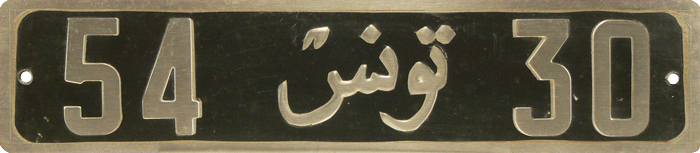 54 تونس 30